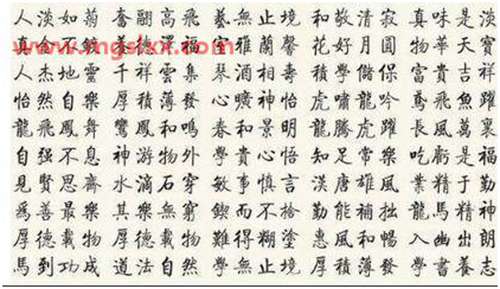 人淡如菊 奮翮高飛 藝無止境 和敬清寂 真味是淡
www.mgslxx.com
真金不鍍 德澤福 室雅蘭馨 花好月圓 物華天寶
人杰地靈 千祥雲集 琴酒相壽 積學儲 富貴吉祥
怡然自樂 厚積薄發 心曠神怡 虎嘯龍吟 鳶飛魚躍
龍飛鳳舞 鸞鳳和鳴 春和景明 龍騰虎躍 長風萬裏
自强不息 神游物外 學貴心悟 知足常樂 吃虧是福
見賢思齋 水滴石穿 敏事慎言 漢唐雄風 業精于勤
爲善最樂 其樂無窮 鍥而不捨 勤能補拙 龍馬精神
厚德載物 厚德載物 難得糊塗 惠風和暢 入幽出朗
馬到功成 道法自然 學無止境 厚積薄發 學書養志